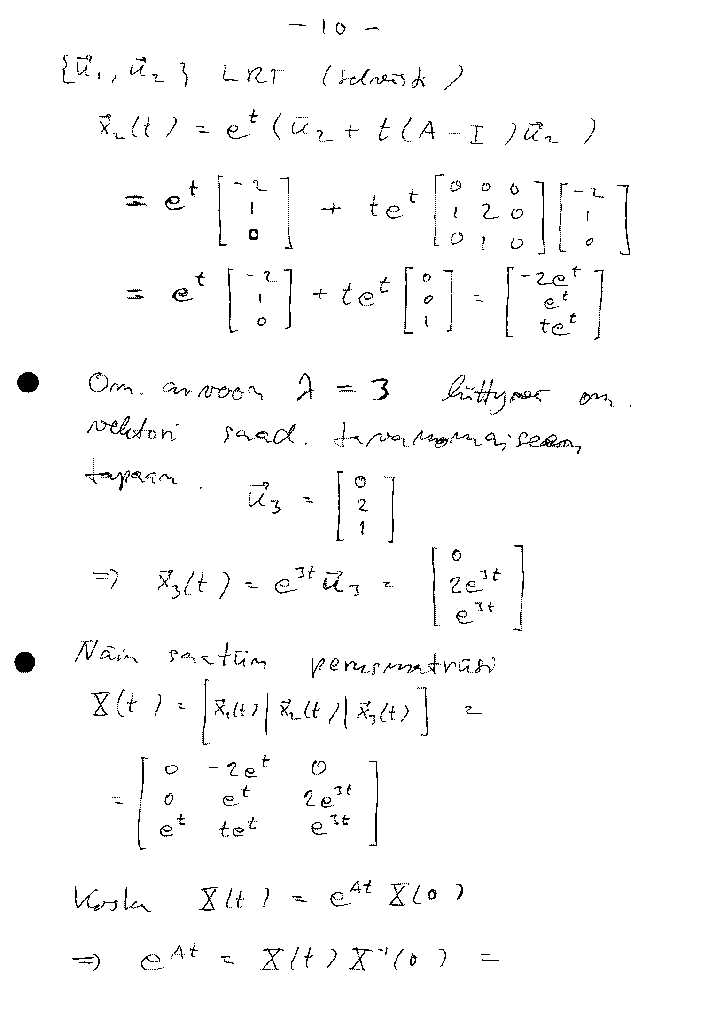 - 10 -
{ū₁, ū₂} LRT (selvästi)
x̄₂(t) = eᵗ(ū₂ + t(A - I)ū₂)
= eᵗ [-2; 1; 0] + teᵗ [0 0 0; 1 2 0; 0 1 0] [-2; 1; 0]
= eᵗ [-2; 1; 0] + teᵗ [0; 0; 1] = [-2eᵗ; eᵗ; teᵗ]
Om. arvoon λ = 3 liittyvät om.
vektori saad. tavanomaiseen
tapaan. ū₃ = [0; 2; 1]
⇒ x̄₃(t) = e³ᵗ ū₃ = [0; 2e³ᵗ; e³ᵗ]
Näin saatiin perusmatriisi
X(t) = [x̄₁(t) | x̄₂(t) | x̄₃(t)] =
= [0 -2eᵗ 0; 0 eᵗ 2e³ᵗ; eᵗ teᵗ e³ᵗ]
Koska X(t) = e^{At} X(0)
⇒ e^{At} = X(t) X⁻¹(0) =